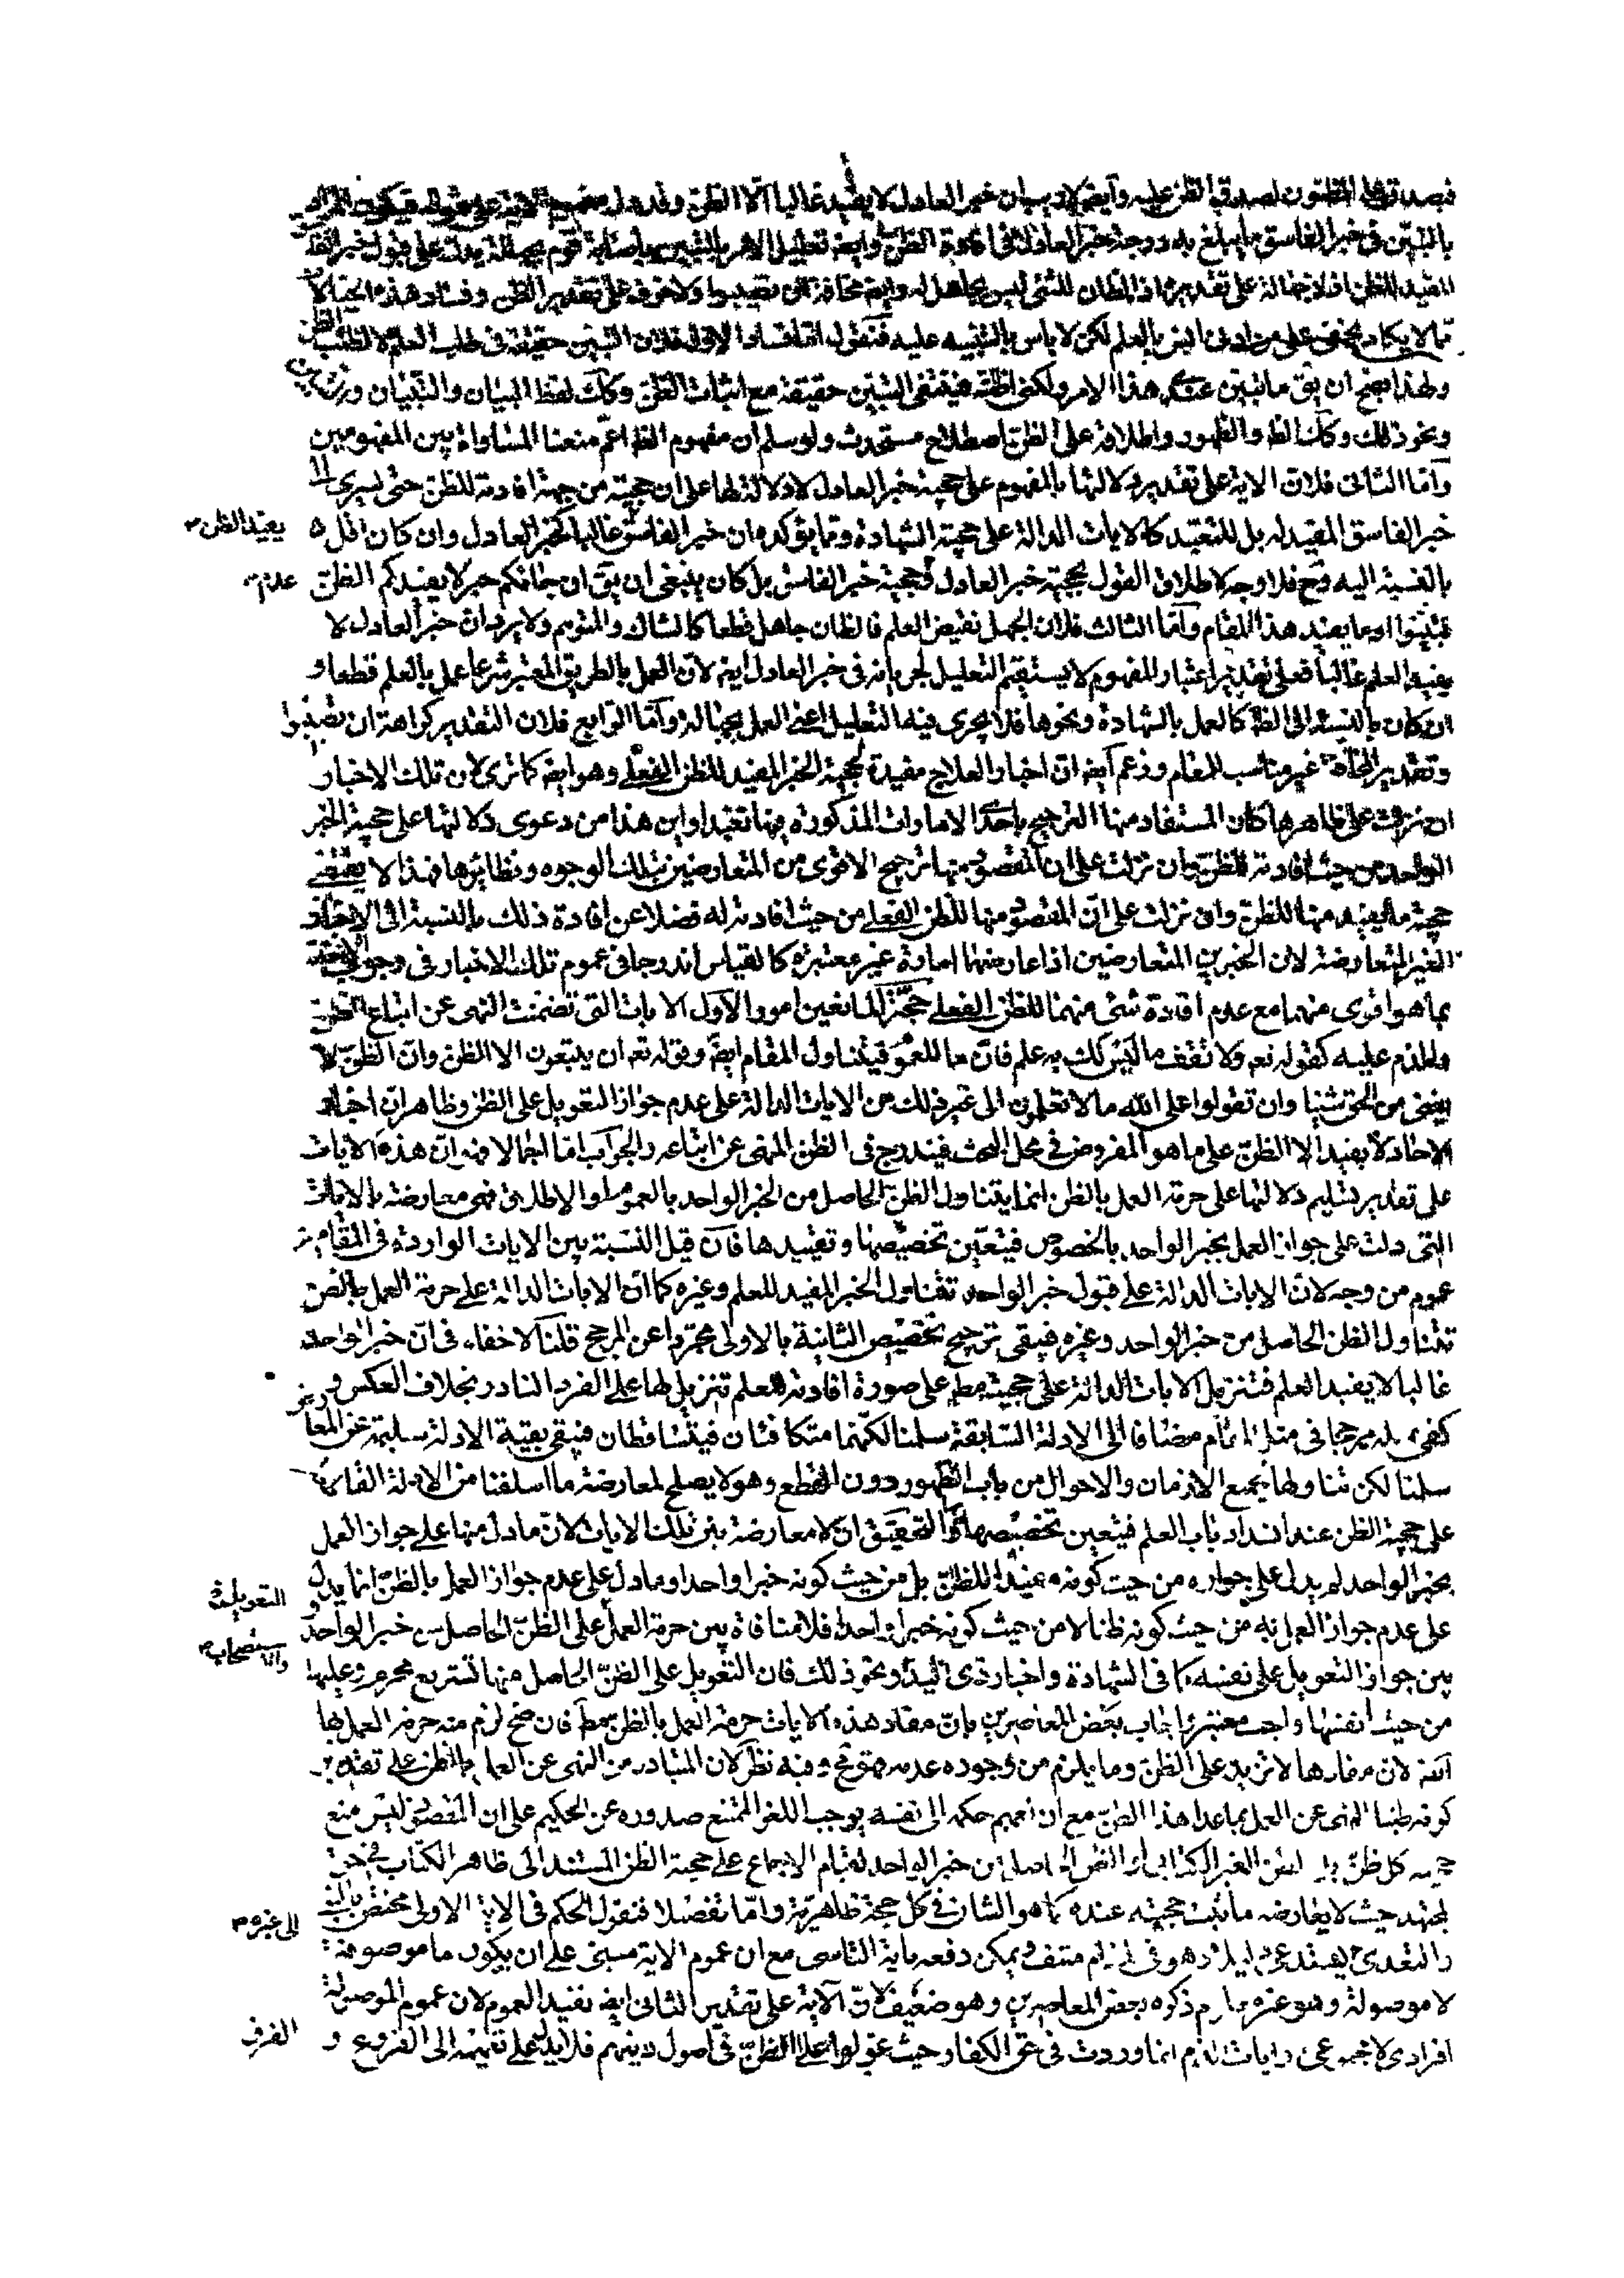 فيصدق على المظنون لصدق الظن عليه وايضا لا ريب ان خبر العادل لا يفيد غالبا الا الظن وقد دل مفهوم الاية على قبوله فيكون المراد
بالتبين فى خبر الفاسق ما يبلغ به درجة خبر العادل فى افادة الظن وايضا تعليل الامر بالتبين باصابة قوم بجهالة يدل على قبول خبر الفاسق
المفيد للظن اذ لا جهالة على تقديره اذ الظان للشئ ليس بجاهل له وايضا مخافة ان تصيبوا ولا خوف على تقدير الظن وفساد هذه الخيالات
مما لا يكاد يخفى على من له ادنى انس بالعلم لكن لا باس بالتنبيه عليه فنقول اما فساد الاول فلان التبين حقيقة فى طلب العلم لا الظن
ولهذا يصح ان يق ما تبين عندى هذا الامر ولكنى اظنه فينتفى التبين حقيقة مع اثبات الظن وكك لفظ البيان والتبيان
ونحو ذلك وكك الظ والظهور واطلاقه على الظن اصطلاح مستحدث ولو سلم ان مفهوم الظ اعم منعنا المساواة بين المفهومين
واما الثانى فلان الاية على تقدير دلالتها بالمفهوم على حجية خبر العادل لا دلالة لها على ان حجيته من جهة افادته للظن حتى يسرى الى
خبر الفاسق المفيد له بل للتعبد كالايات الدالة على حجية الشهادة ومما يؤكده ان خبر الفاسق غالبا كخبر العادل وان كان اقل يفيد الظن
بالنسبة اليه وح فلا وجه لاطلاق القول بحجية خبر العادل وعدم حجية خبر الفاسق بل كان ينبغى ان يق ان جائكم خبر لا يفيدكم الظن
فتبينوا او ما يفيد هذا المقام واما الثالث فلان الجهل نقيض العلم فالظان جاهل قطعا كالشاك والمتوهم ولا يرد ان خبر العادل لا
يفيد العلم غالبا فعلى تقدير اعتبار المفهوم لا يستقيم التعليل لجريانه فى خبر العادل ايضا لان العمل بالطريق المعتبر شرعا عمل بالعلم قطعا و
ان كان بالنسبة الى الظ كالعمل بالشهادة ونحوها فلا يجرى فيه التعليل اعنى العمل بجهالة واما الرابع فلان التقدير كراهة ان تصيبوا
وتقدير المخافة غير مناسب للمقام وزعم ايضا ان اخبار العلاج مفيدة لحجية الخبر المفيد للظن الفعلى وهو ايضا كما ترى لان تلك الاخبار
ان نزلت على ظاهرها كان المستفاد منها الترجيح باحد الامارات المذكورة فيها تعبدا واين هذا من دعوى دلالتها على حجية الخبر
الواحد من حيث افادته للظن وان نزلت على ان المقصود منها ترجيح الاقوى من المتعارضين بتلك الوجوه ونظائرها فهذا لا يقتضى
حجية ما يفيد منها للظن وان نزلت على ان المقصود منها للظن الفعلى من حيث افادته له فضلا عن افادة ذلك بالنسبة الى الاخبار
الغير المتعارضة لان الخبرين المتعارضين اذا عارضهما امارة غير معتبرة كالقياس اندرجا فى عموم تلك الاخبار فى وجوب الاخذ
بما هو اقوى منهما مع عدم افادة شئ منهما للظن الفعلى حجة المانعين امور الاول الايات التى تضمنت النهى عن اتباع الظن
والذم عليه كقوله تعه ولا تقف ما ليس لك به علم فان ما للعموم فيتناول المقام ايضا وقوله تعه ان يتبعون الا الظن وان الظن لا
يغنى من الحق شيئا وان تقولوا على الله ما لا تعلمون الى غير ذلك من الايات الدالة على عدم جواز التعويل على الظن وظاهر ان اخبار
الاحاد لا يفيد الا الظن على ما هو المفروض فى محل البحث فيندرج فى الظن المنهى عن اتباعه والجواب اما اجمالا فهو ان هذه الايات
على تقدير تسليم دلالتها على حرمة العمل بالظن انما يتناول الظن الحاصل من الخبر الواحد بالعموم او الاطلاق فهى معارضة بالايات
التى دلت على جواز العمل بخبر الواحد بالخصوص فيتعين تخصيصها وتقييدها فان قيل النسبة بين الايات الواردة فى المقام
عموم من وجه لان الايات الدالة على قبول خبر الواحد تتناول الخبر المفيد للعلم وغيره كما ان الايات الدالة على حرمة العمل بالظن
تتناول الظن الحاصل من خبر الواحد وغيره فيبقى ترجيح تخصيص الثانية بالاولى مجردا عن المرجح قلنا لا خفاء فى ان خبر الواحد
غالبا لا يفيد العلم فتنزيل الايات الدالة على حجيته مط على صورة افادته للعلم تنزيل لها على الفرد النادر بخلاف العكس و
كفى به مرجحا فى مثل المقام مضافا الى الادلة السابقة سلمنا لكنهما متكافئان فيتساقطان فيبقى بقية الادلة سليمة عن المعا
سلمنا لكن تناولها لجميع الازمان والاحوال من باب الظهور دون القطع وهو لا يصلح لمعارضة ما اسلفنا من الادلة القاطعة
على حجية الظن عند انسداد باب العلم فيتعين تخصيصها والتحقيق ان لا معارضة بين تلك الايات لان ما دل منها على جواز العمل
بخبر الواحد لم يدل على جوازه من حيث كونه مفيدا للظن بل من حيث كونه خبرا واحدا وما دل على عدم جواز العمل بالظن انما يدل
على عدم جواز العمل به من حيث كونه ظنا لا من حيث كونه خبرا واحدا فلا منافاة بين حرمة العمل على الظن الحاصل من خبر الواحد و
بين جواز التعويل على نفسه كما فى الشهادة واخبار ذى اليد ونحو ذلك فان التعويل على الظن الحاصل منها تشريع محرم وعليها
من حيث انفسها واجب معتبر واجاب بعض المعاصرين بان مفاد هذه الايات حرمة العمل بالظن مط فان صح لزم منه حرمة العمل بها
ايضا لان مفادها لا تزيد على الظن وما يلزم من وجوده عدمه ممتنع وفيه نظر لان المتبادر من النهى عن العمل بالظن على تقدير
كونه ظنيا النهى عن العمل بما عدا هذا الظن مع ان تعميم حكمه الى نفسه يوجب اللغو الممتنع صدوره عن الحكيم على ان المقصود ليس منع
حجية كل ظن بل الظن الغير الكتابى او الظن الحاصل من خبر الواحد لقيام الاجماع على حجية الظن المستند الى ظاهر الكتاب فى حق
المجتهد حيث لا يعارضه ما ثبت حجيته عنده كما هو الشان فى كل حجة ظاهرية واما تفصيلا فنقول الحكم فى الاية الاولى مختص بالنبى
والتعدى يستدعى دليلا وهو فى المقام منتف ويمكن دفعه باية التاسى مع ان عموم الاية مبنى على ان يكون ما موصوفة
لا موصولة وهو غير معلوم ذكره بعض المعاصرين وهو ضعيف لان الاية على تقدير الثانى ايضا تفيد العموم لان عموم الموصولة
افرادى لا مجموعى وايات الذم انما وردت فى حق الكفار حيث عولوا على الظن فى اصول دينهم فلا يدل على تعميمه الى الفروع و
يفيد الظن
عدم
التعويل
والاستصحاب
الى غيره
الفرق